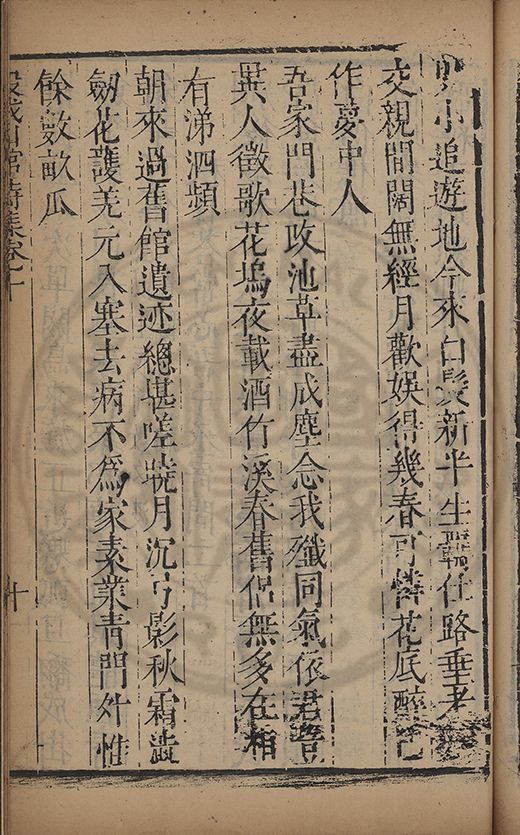 小追遊地今來白髮新半生羈仕路垂老
交親間闊無經月歡娛得幾春可憐花底醉已
作夢中人
吾家門巷攺池草盡成塵念我殲同氣依君豈
異人徵歌花塢夜載酒竹溪春舊侶無多在相
有涕泗頻
朝來過舊館遺迹總堪嗟曉月沉弓影秋霜澁
劒花護羌元入塞去病不爲家素業青門外惟
餘數畝瓜
詩集卷之十
十